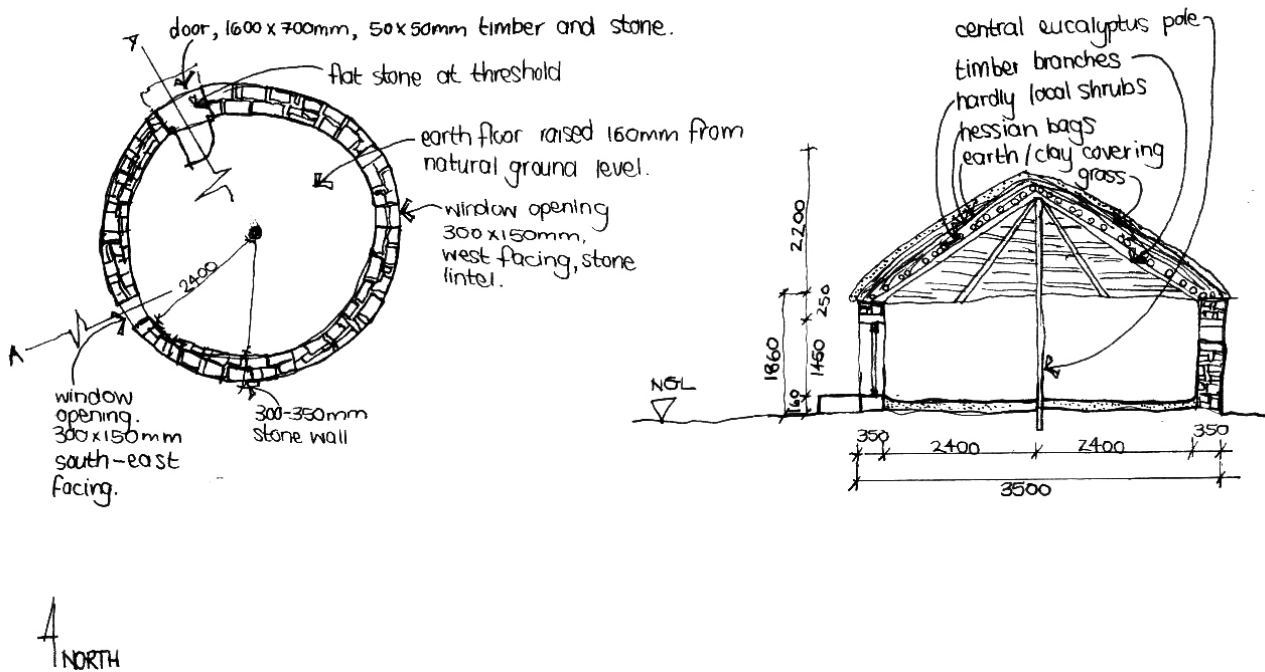 door, 1600 x 700mm, 50 x 50mm timber and stone.
A
flat stone at threshold
earth floor raised 160mm from
natural ground level.
window opening
300 x 150mm,
west facing, stone
lintel.
2400
A
window
opening.
300 x 150mm
south-east
facing.
300-350mm
stone wall
NORTH
central eucalyptus pole
timber branches
hardly local shrubs
hessian bags
earth/clay covering
grass
2200
250
1860
1460
160
NGL
350
2400
2400
350
3500